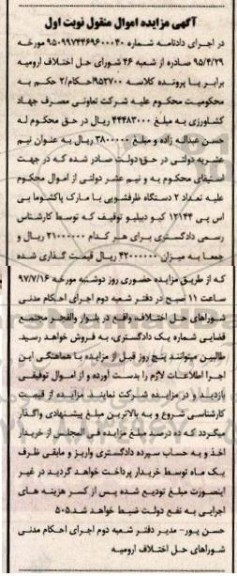 آگهی مزایده اموال منقول نوبت اول
در اجرای دادنامه شماره ۹۵۰۹۹۷۴۴۶۹۶۰۰۰۴۰ مورخه
۹۵/۴/۲۹ صادره از شعبه ۴۶ شورای حل اختلاف ارومیه
برابر با پرونده کلاسه ۹۵۲۷۰۰/احکام/۲ حکم به
محکومیت محکوم علیه شرکت تعاونی مصرف جهاد
کشاورزی به مبلغ ۴۴۴۸۳۰۰۰ ریال در حق محکوم له
حسن عبداله زاده و مبلغ ۳۸۰۰۰۰۰ ریال به عنوان نیم
عشریه دولتی در حق دولت صادر شده که در جهت
استیفای محکوم به و نیم عشر دولتی از اموال محکوم
علیه تعداد ۲ دستگاه ظرفشویی با مارک پاکشوما بی
اس پی ۱۲۱۴۴ کیو دبلیو توقیف که توسط کارشناس
رسمی دادگستری برای هر کدام ۲۱۰۰۰۰۰۰ ریال و
جمعا به میزان ۴۲۰۰۰۰۰۰ ریال قیمت گذاری شده
که از طریق مزایده حضوری روز دوشنبه مورخه ۹۷/۷/۱۶
ساعت ۱۱ صبح در دفتر شعبه دوم اجرای احکام مدنی
شوراهای حل اختلاف واقع در بلوار والفجر مجتمع
قضایی شماره یک دادگستری، به فروش خواهد رسید.
طالبین میتوانند پنج روز قبل از مزایده با هماهنگی این
اجرا اطلاعات لازم را بدست آورده و از اموال توقیفی
بازدید و در مزایده شرکت نمایند. مزایده از قیمت
کارشناسی شروع و به بالاترین مبلغ پیشنهادی واگذار
میگردد که ده درصد مبلغ مزایده فی المجلس از خریدار
اخذ و به حساب سپرده دادگستری واریز و مابقی ظرف
یک ماه توسط خریدار پرداخت خواهد گردید در غیر
اینصورت مبلغ تودیع شده پس از کسر هزینه های
اجرایی به نفع دولت ضبط خواهد شد.۵۰۵
حسن پور- مدیر دفتر شعبه دوم اجرای احکام مدنی
شوراهای حل اختلاف ارومیه